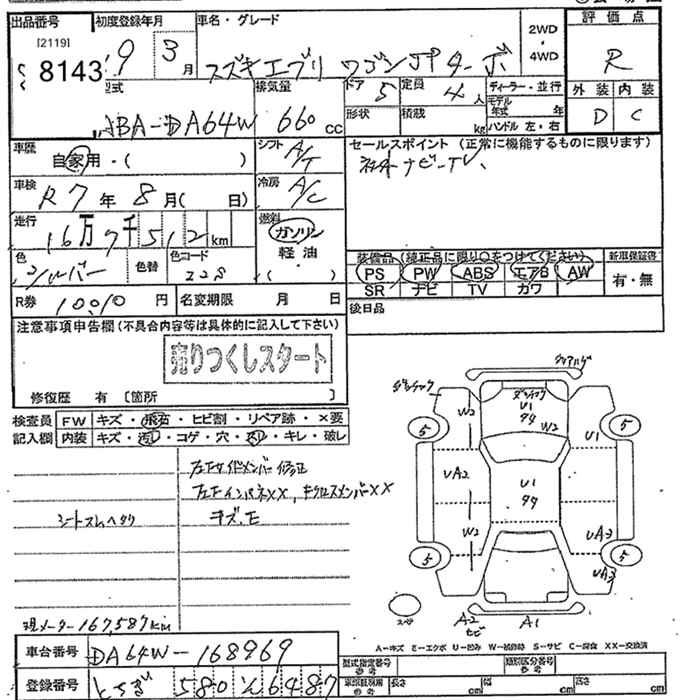 出品番号 初度登録年月 車名・グレード 2WD ・ 4WD 評価点
[2119]
8143 19 3月 スズキ エブリ ワゴン JPターボ R
型式 排気量 ドア 5 定員 4人 ディーラー・並行 外装 内装
ABA-DA64W 660cc 形状 積載 kg モデル年式 年 D C
ハンドル 左・右
車歴 シフト A/T セールスポイント (正常に機能するものに限ります)
自家用・( ) ナビ-TV、
車検 冷房 A/C
R7年 8月( 日)
走行 燃料
16万7千512km ガソリン
色 シルバー 色替 色コード 軽油 装備品(純正品に限り○をつけてください) 新車保証書
Z2S ・ PS PW ABS エアB AW 有・無
( ) SR ナビ TV カワ
R券 10,010円 名変期限 月 日 後日品
注意事項申告欄(不具合内容等は具体的に記入して下さい)
売りつくしスタート
修復歴 有 〔箇所 〕
検査員 FW キズ・飛石・ヒビ割・リペア跡・×要
記入欄 内装 キズ・汚レ・コゲ・穴・内ハリ・キレ・破レ
左Fサイドメンバー修正
左Fインパネ××、キクロスメンバー××
シートスレヘタリ キズ、モ
現メーター 167,587km
W2 U1 44 W2 U1
5 5
UA2 U1 44
W2 UA3
5 5
UA3
スペア A2 ヒビ A1
A-キズ E-エクボ U-凹み W-補修跡 S-サビ C-腐食 XX-交換済
車台番号 DA64W-168969 型式指定番号 類別区分番号
登録番号 とちぎ 580 ん 6487 参考 長さ cm 幅 cm 高さ cm